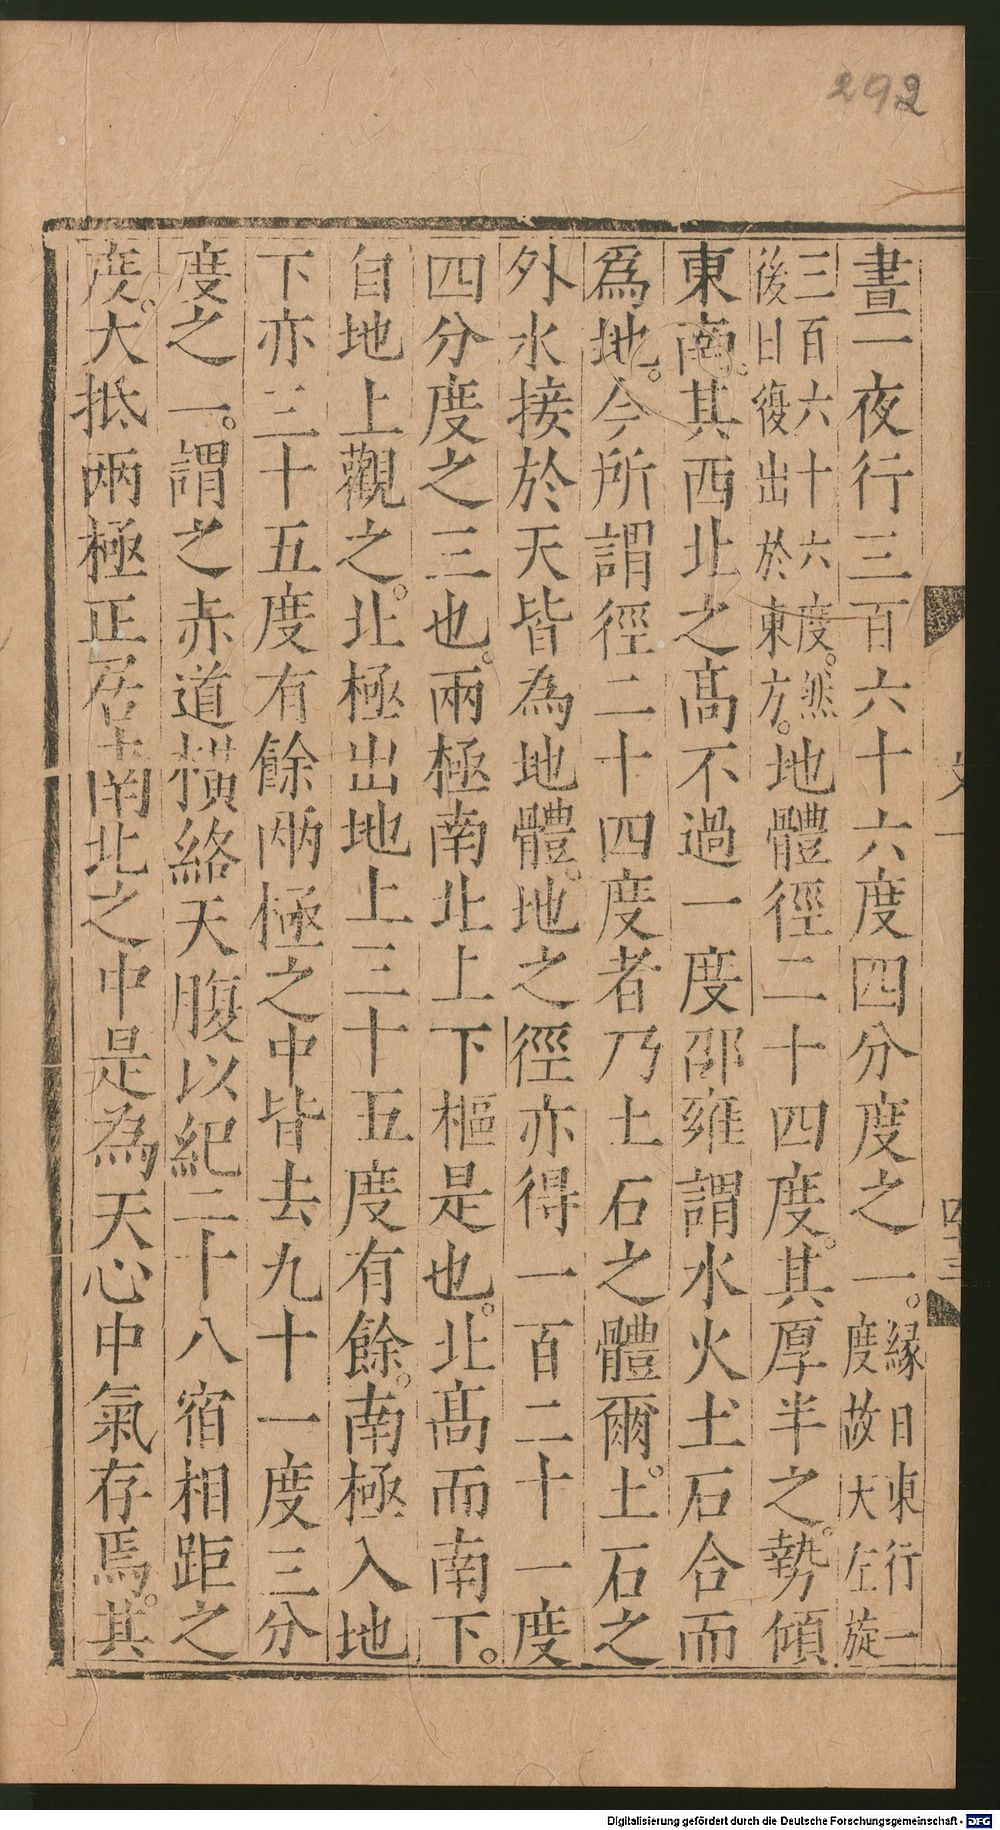 292
晝一夜行三百六十六度四分度之一。縁日東行一度故大左旋
三百六十六度。然後日復出於東方。地體徑二十四度。其厚半之。勢傾
東南。其西北之髙不過一度邵雍謂水火土石合而
爲地。今所謂徑二十四度者乃土石之體爾。土石之
外水接於天皆為地體。地之徑亦得一百二十一度
四分度之三也。兩極南北上下樞是也。北髙而南下。
自地上觀之。北極出地上三十五度有餘。南極入地
下亦三十五度有餘兩極之中皆去九十一度三分
度之一。謂之赤道橫絡天腹以紀二十八宿相距之
度。大抵兩極正居南北之中是為天心中氣存焉。其
Digitalisierung gefördert durch die Deutsche Forschungsgemeinschaft - DFG